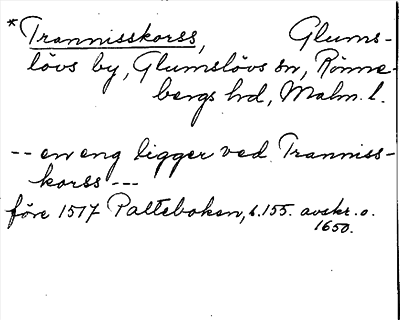 *Trannisskorss, Glums-
lövs by, Glumslövs sn, Rönne-
bergs hd, Malm. l.
-- en eng ligger ved Tranniss-
korss ---
före 1517 Palteboken, s.155. avskr. o.
1650.